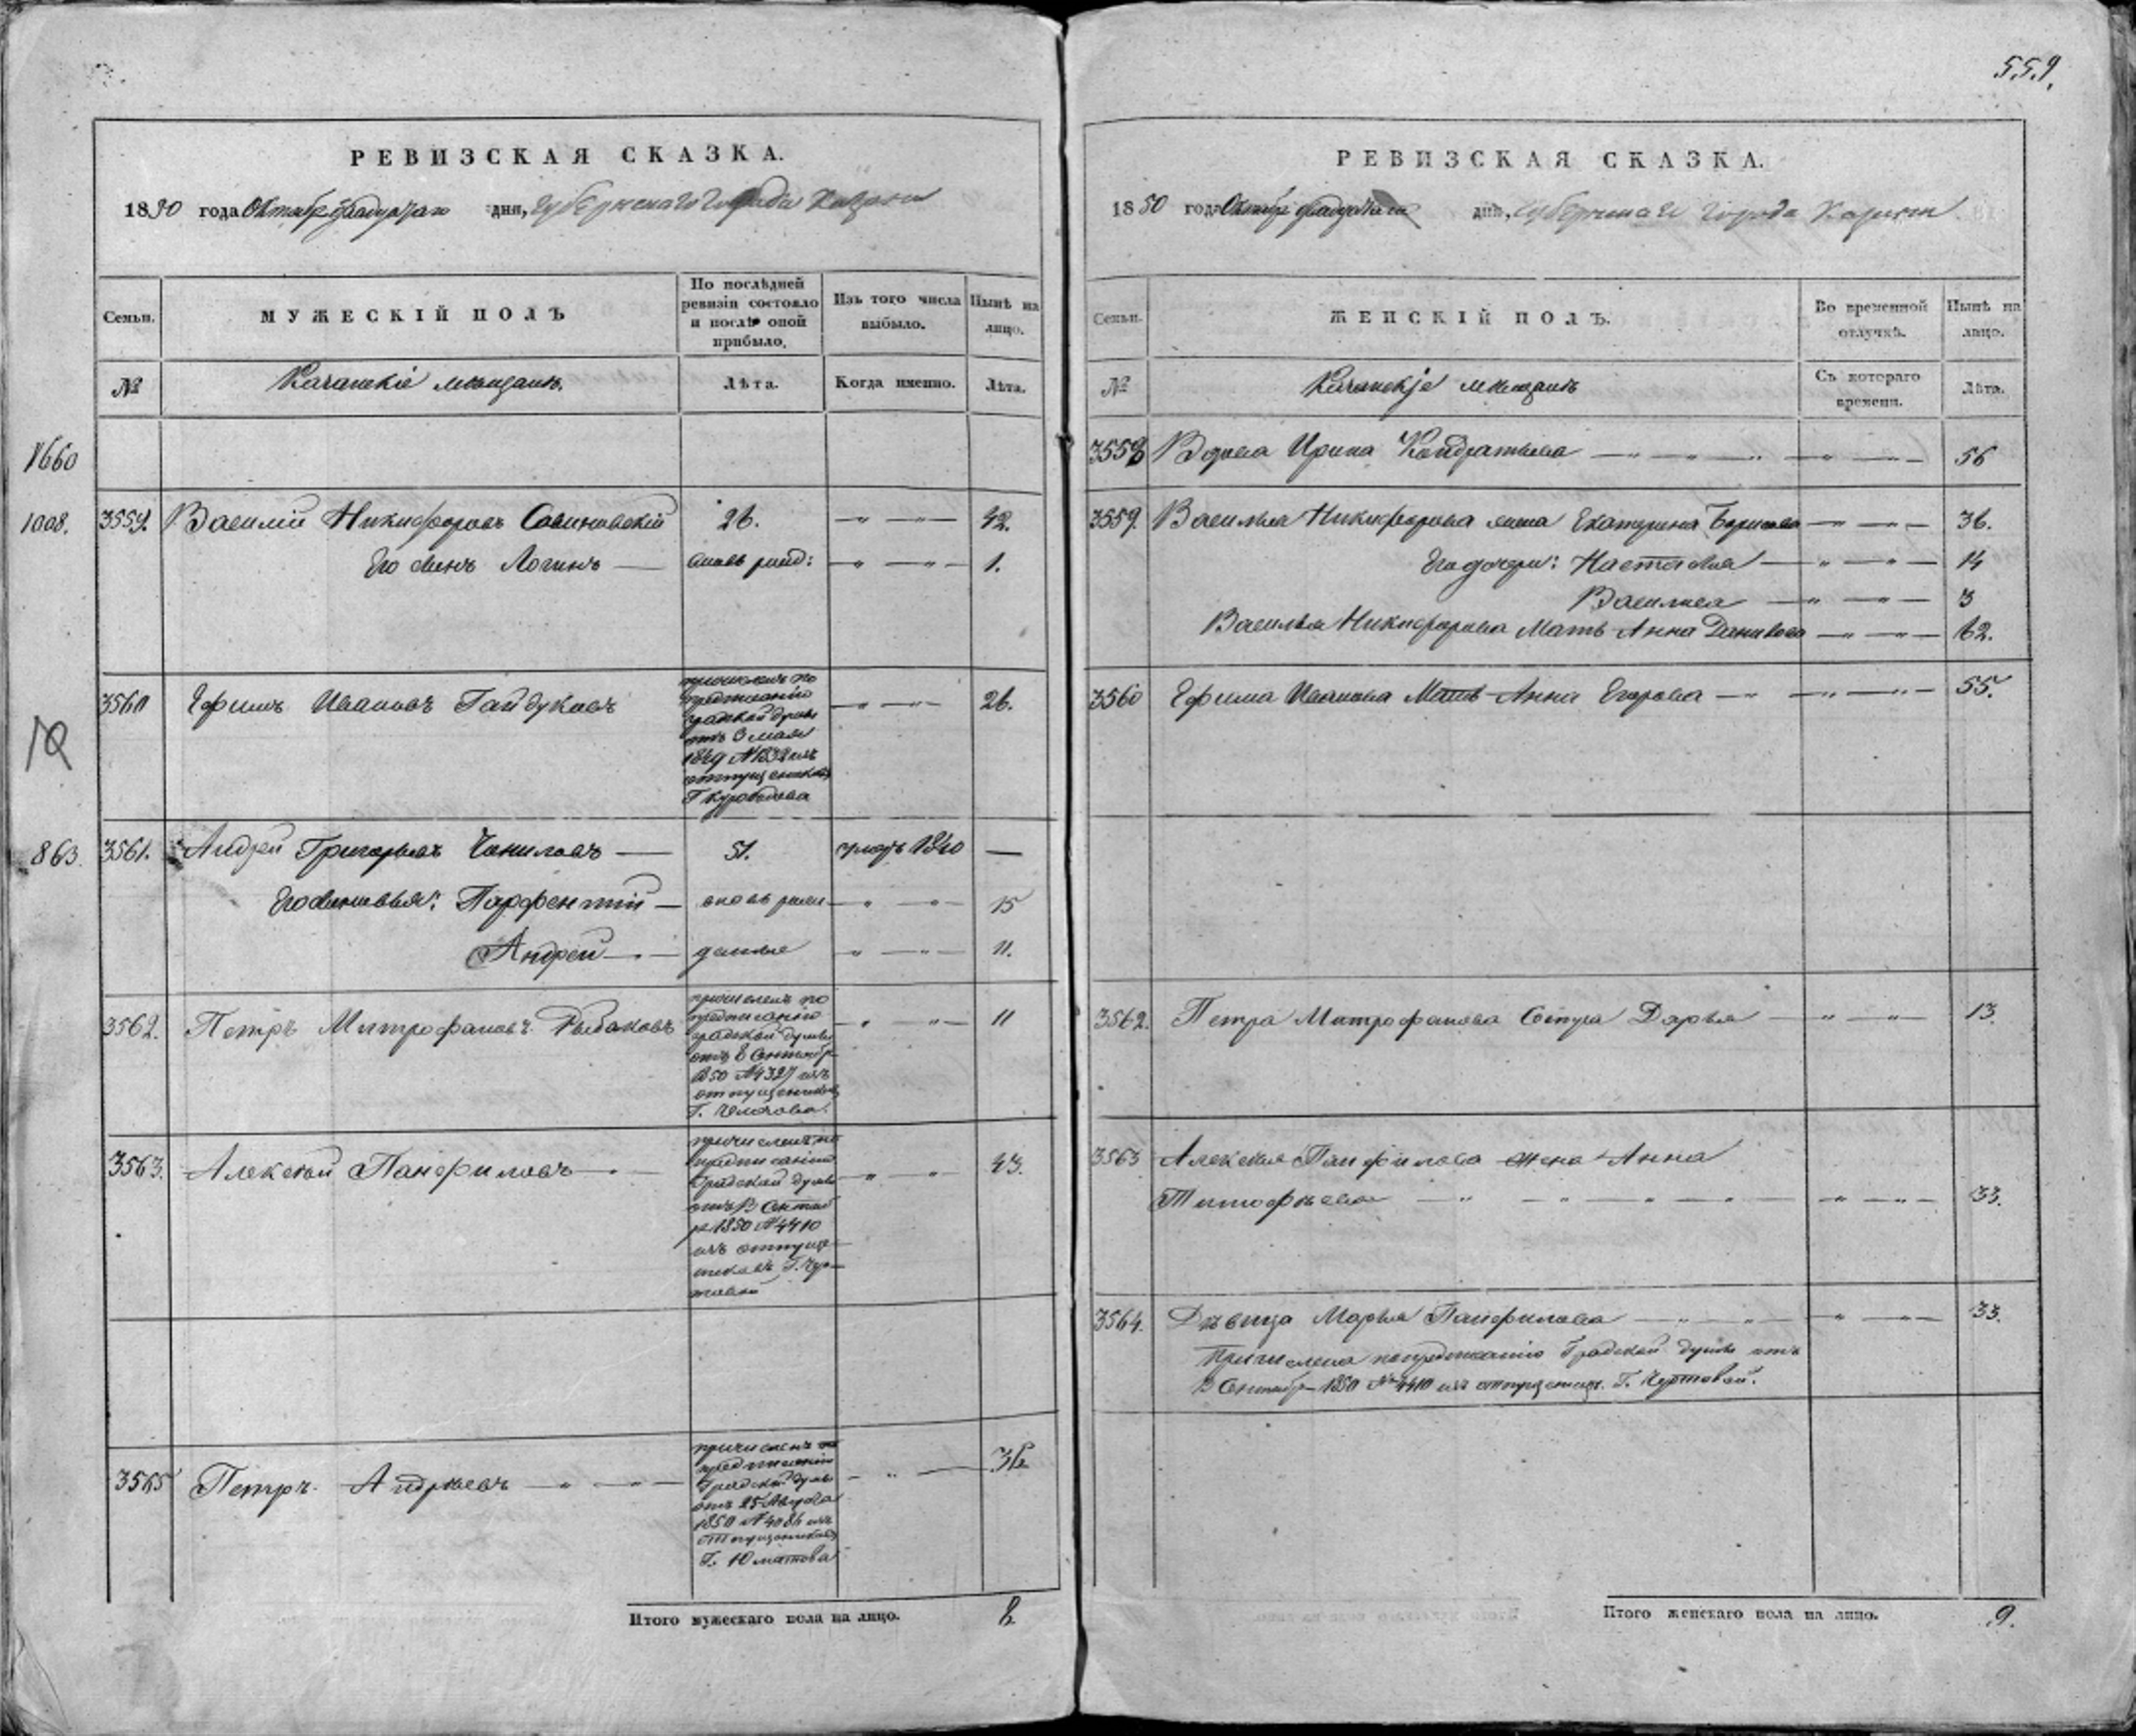 559.
РЕВИЗСКАЯ СКАЗКА.
1850 года Октября двадцатаго дня, Губернскаго города Казани
Семьи.
МУЖЕСКІЙ ПОЛЪ
По послѣдней ревизіи состояло и послѣ оной прибыло.
Изъ того числа выбыло.
Нынѣ на лицо.
№
Казанскіе мѣщане.
Лѣта.
Когда именно.
Лѣта.
1660
1008. 3559. Василій Никифоровъ Савиновскій 26. — " — " — 42.
Его сынъ Логинъ — вновь рожд: — " — " — 1.
3560 Ефимъ Ивановъ Гайдуковъ — " — " — 26.
причисленъ по
предписанію
градской думы
отъ 3 мая
1849 № 1832 изъ
отпущенниковъ
Г
863. 3561. Андрей Григорьевъ — 51. умеръ 1840 —
Его сыновья: Парфентій — вновь рожд — " — " — 15
Андрей — — " — " — 11.
3562. Петръ Митрофановъ Рыбаковъ — " — " — 11
причисленъ по
предписанію
градской думы
отъ 8 Сентябр
1850 № 4327 изъ
отпущенниковъ
Г.
3563. Алексѣй Панфиловъ — — " — " — 43.
причисленъ по
предписанію
Градской думы
отъ 13 Сентяб
ря 1850 № 4410
изъ отпуще
нниковъ Г. Чер
товой
3565 Петръ Андреевъ — " — " — — " — 36
причисленъ по
предписанію
Градской думы
отъ 25 Августа
1850 № 4086 изъ
отпущенниковъ
Г. Юматова
Итого мужескаго пола на лицо. 8
РЕВИЗСКАЯ СКАЗКА.
1850 года Октября двадцатаго дня, Губернскаго города Казани
Семьи.
ЖЕНСКІЙ ПОЛЪ.
Во временной отлучкѣ.
Нынѣ на лицо.
№
Казанскіе мѣщане
Съ котораго времени.
Лѣта.
3558 Вдова Ирина Кондратьева — " — " — " — " — " — 56
3559. Василья Никифорова жена Екатерина Борисова — " — " — 36.
Его дочери: Настасья — " — " — 14
Василиса — " — " — 3
Василья Никифорова Мать Анна Данилова — " — " — 62.
3560 Ефима Иванова Мать Анна Егорова — " — " — " — 55.
3562. Петра Митрофанова Сестра Дарья — " — " — 13.
3563 Алексѣя Панфилова жена Анна
Тимофѣева — " — " — " — " — " — " — 33.
3564. Дѣвица Марья Панфилова — " — " — " — " — 33.
Причислена по предписанію Градской думы отъ
13 Сентябр 1850 № 4410 изъ отпущенницъ. Г. Чертовой.
Итого женскаго пола на лицо. 9.